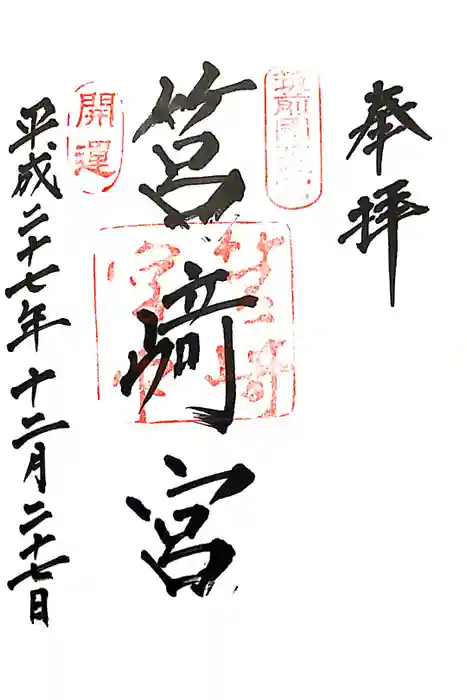 奉拝
筑前國
筥崎宮
開運
平成二十七年十二月二十七日